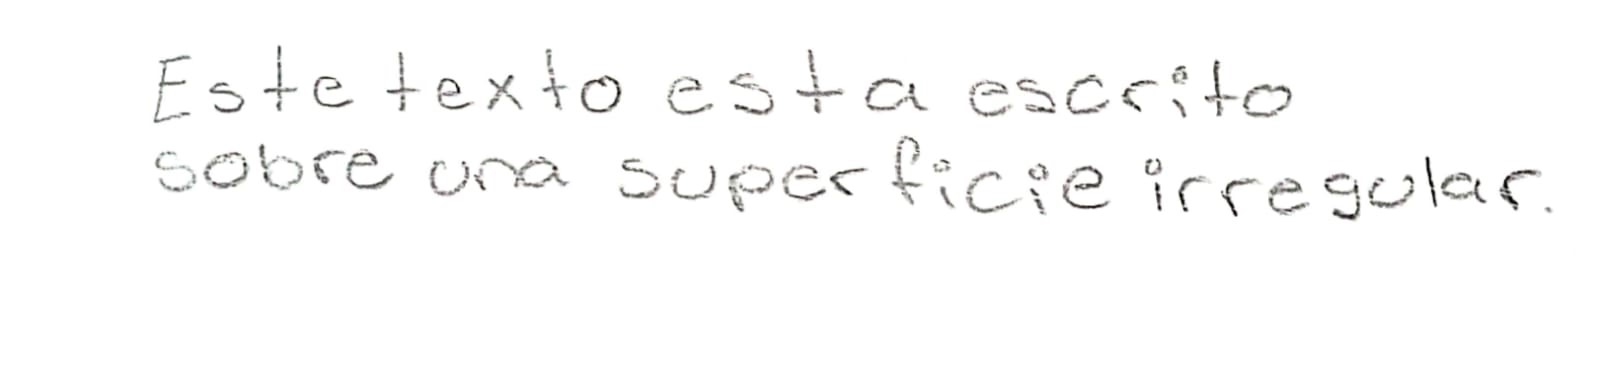 Este texto esta escrito
sobre una superficie irregular.